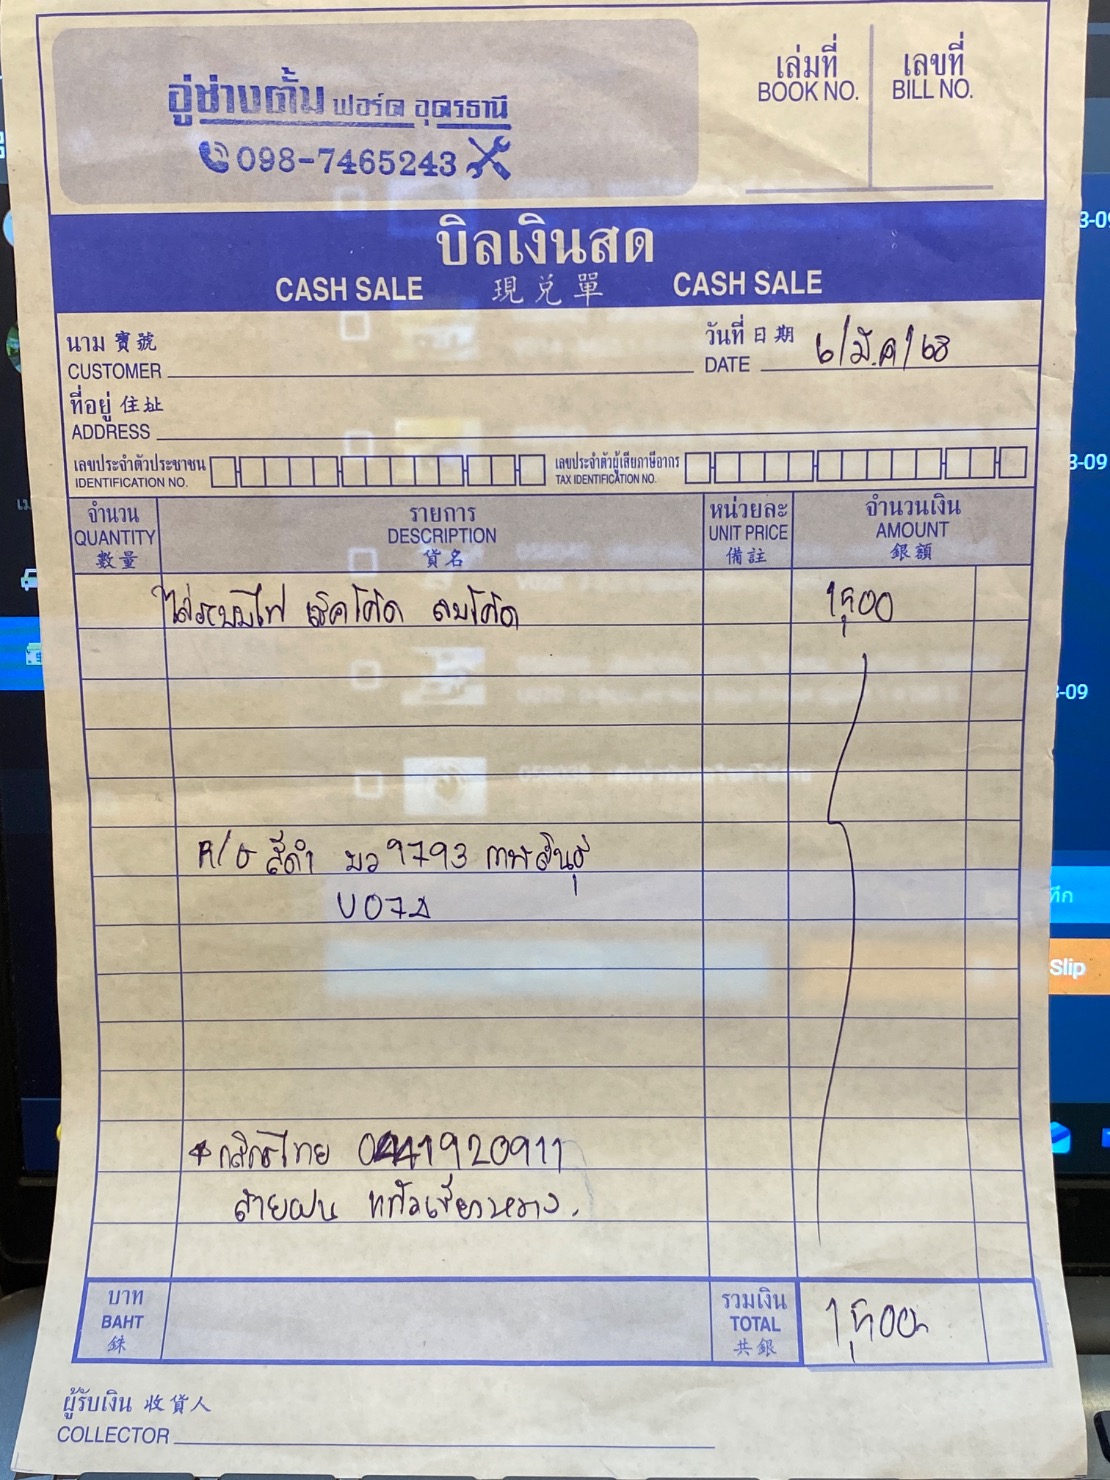 อู่ช่างตั้ม ฟอร์ด อุดรธานี
098-7465243
เล่มที่
BOOK NO.
เลขที่
BILL NO.
บิลเงินสด
CASH SALE 現兌單 CASH SALE
นาม 寶號
CUSTOMER
วันที่ 日期
DATE
6/มี.ค/68
ที่อยู่ 住址
ADDRESS
เลขประจำตัวประชาชน
IDENTIFICATION NO.
เลขประจำตัวผู้เสียภาษีอากร
TAX IDENTIFICATION NO.
จำนวน
QUANTITY
數量
รายการ
DESCRIPTION
貨名
หน่วยละ
UNIT PRICE
備註
จำนวนเงิน
AMOUNT
銀額
ไล่ระบบไฟ เช็คโค้ด ลบโค้ด 1,500
สีดำ 9793 กาฬสินธุ์
กสิกรไทย
สายฝน
บาท
BAHT
銖
รวมเงิน
TOTAL
共銀
1,500
ผู้รับเงิน 收貨人
COLLECTOR
3-09
3-09
-09
Slip